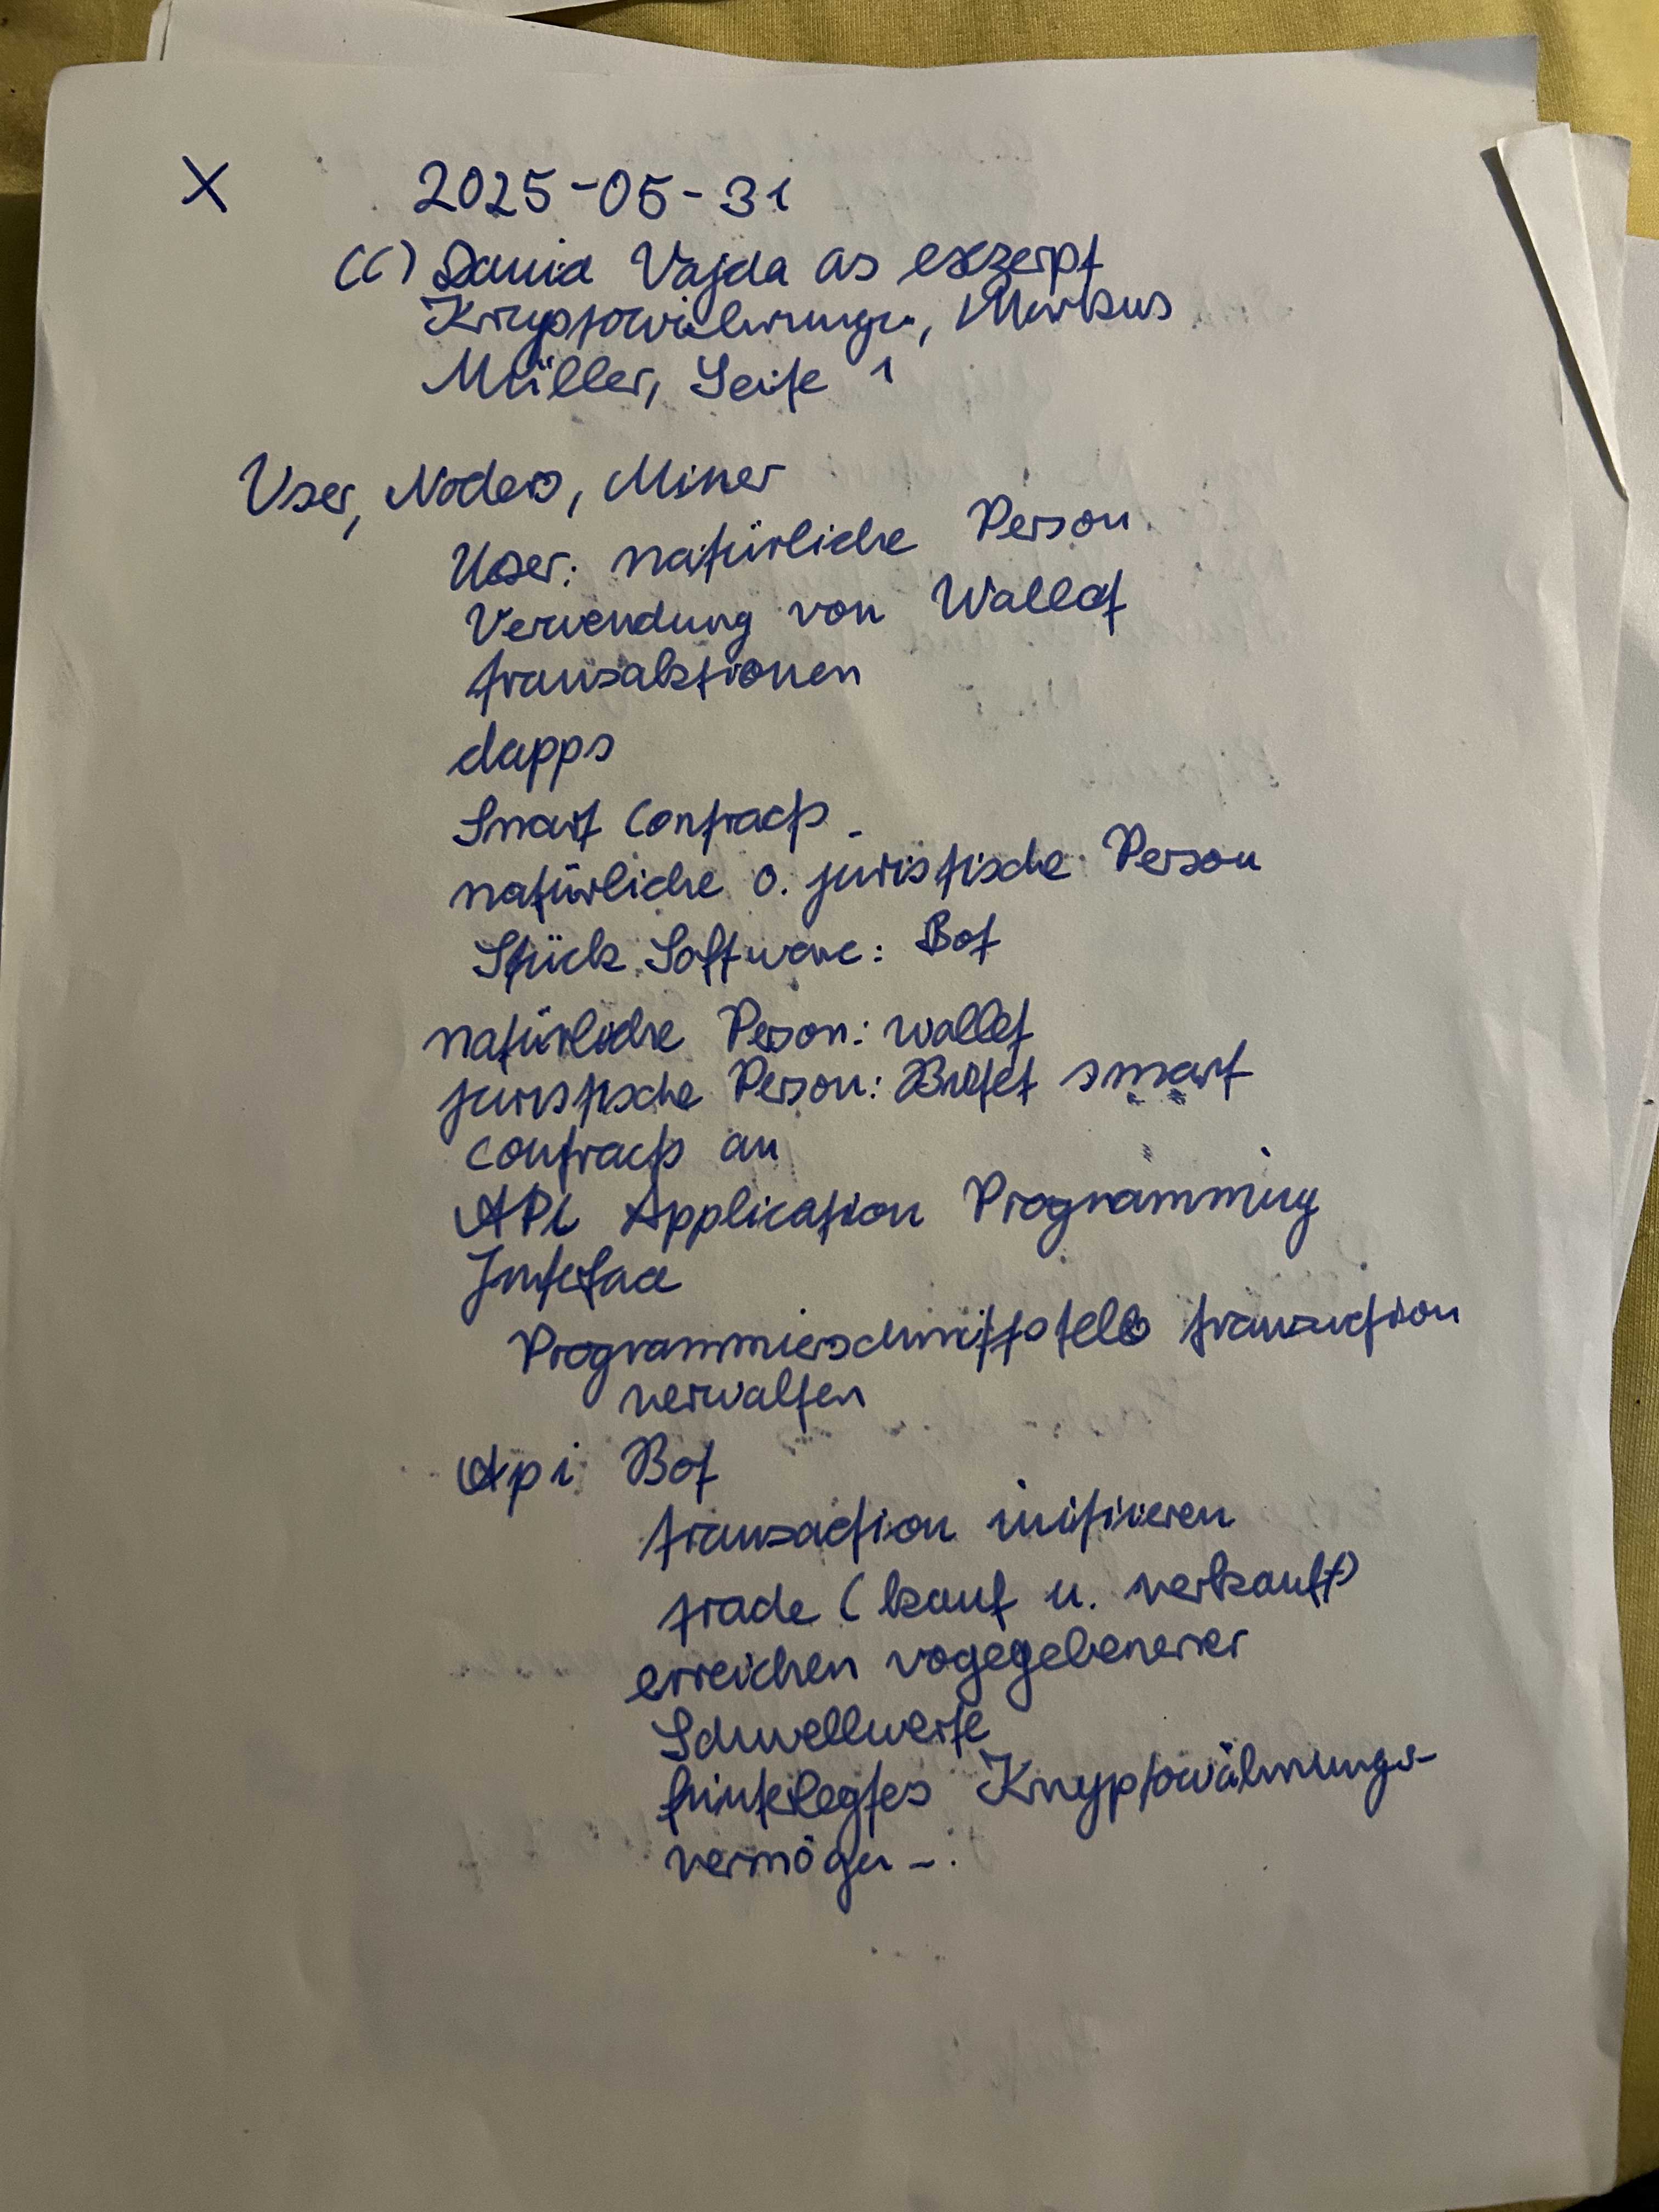 X 2025-05-31
(C) David Vajda as exzerpt
Kryptowährungen, Markus
Müller, Seite 1
User, Nodes, Miner
User: natürliche Person
Verwendung von Wallet
transaktionen
dapps
Smart Contracts
natürliche o. juristische Person
Stück Software: Bot
natürliche Person: wallet
juristische Person: Bietet smart
contracts an
API Application Programming
Interface
Programmierschnittstelle transaction
verwalten
Api Bot
transaction initiieren
trade (kauf u. verkauft)
erreichen vogegebenerer
Schwellwerte
hinterlegtes Kryptowährungs-
vermögen -.